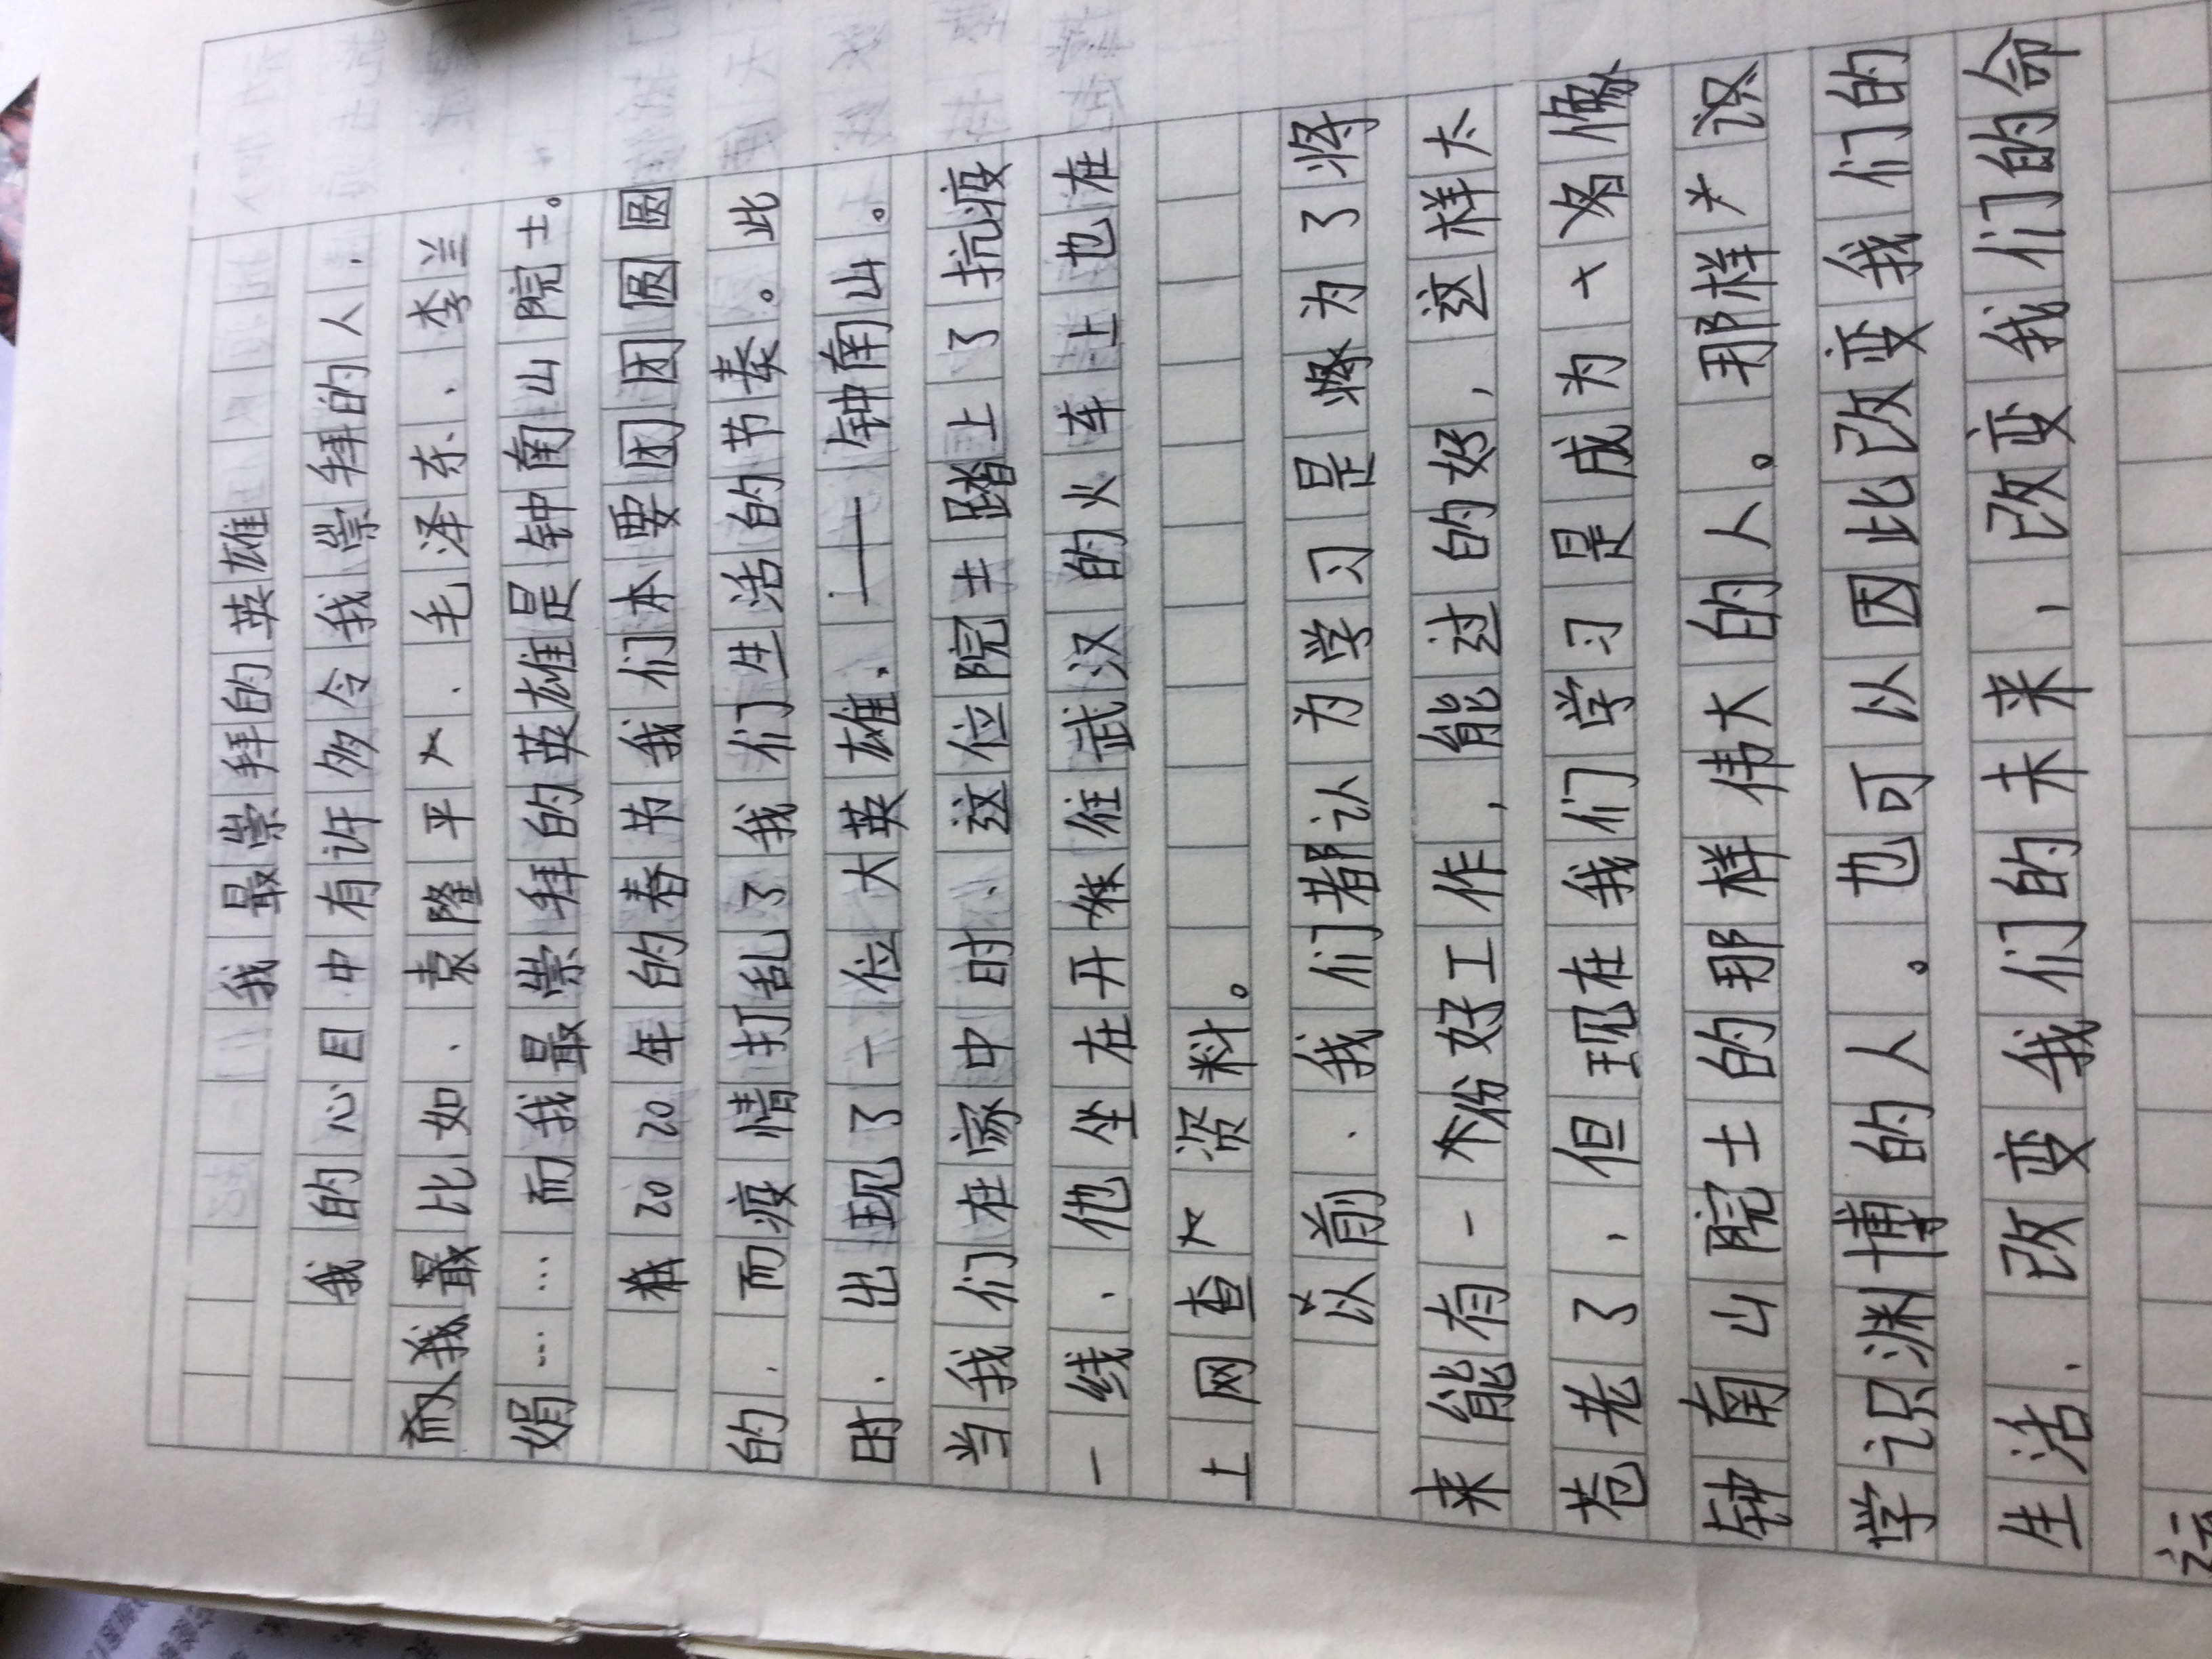 我最崇拜的英雄
我的心目中有许多令我崇拜的人,
最比如、袁隆平、毛泽东、李兰
娟……而我最崇拜的英雄是钟南山院士。
2020年的春节我们本要团团圆圆
的,而疫情打乱了我们生活的节奏。此
时、出现了一位大英雄、——钟南山。
当我们在家中时、这位院士踏上了抗疫
一线、他坐在开往武汉的火车上也在
上网查资料。
以前、我们都认为学习是为了将
来能有一份好工作,能过的好,这样太
苍老了,但现在我们学习是成为像
钟南山院士的那样伟大的人。那样
学识渊博的人。也可以因此改变我们的
生活、改变我们的未来,改变我们的命
运